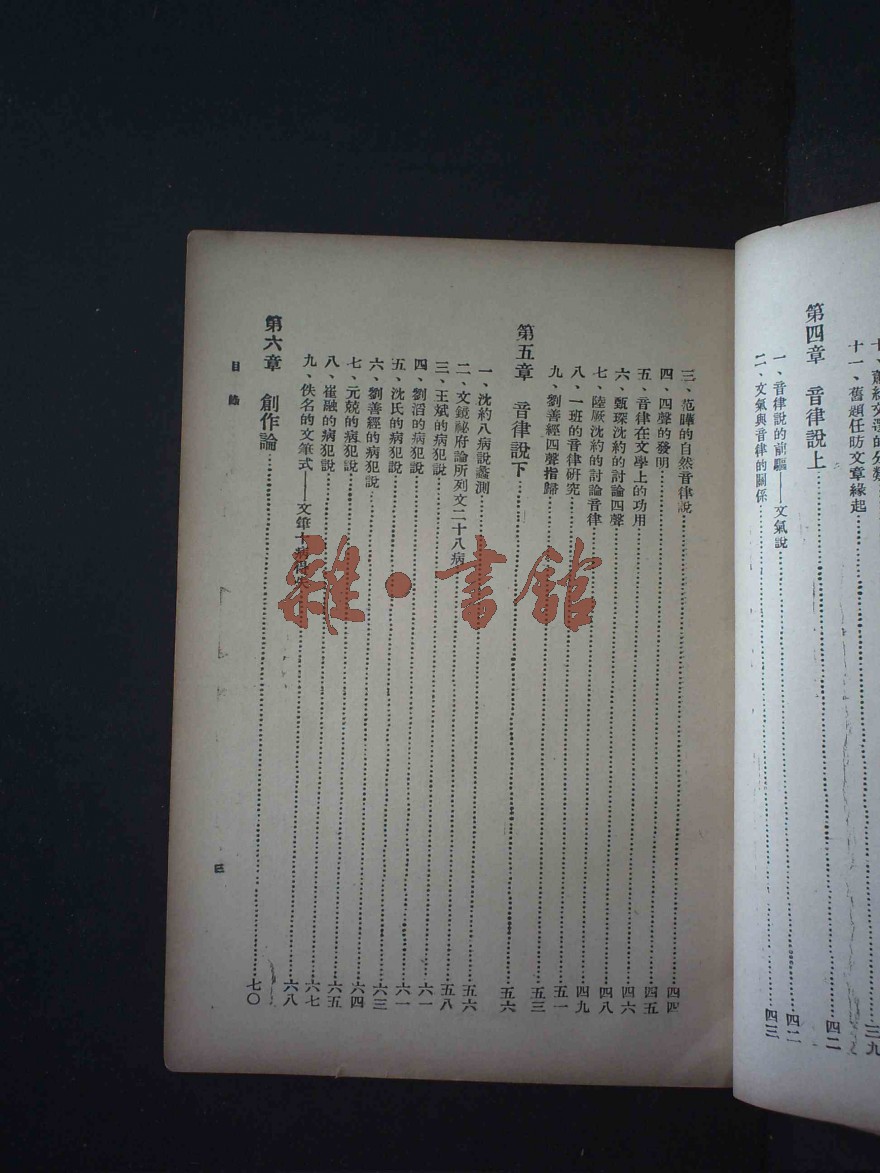 十一、舊題任昉文章緣起⋯⋯三九
第四章　音律說上⋯⋯四二
一、音律說的前驅——文氣說⋯⋯四二
二、文氣與音律的關係⋯⋯四三
三、范曄的自然音律說⋯⋯四四
四、四聲的發明⋯⋯四五
五、音律在文學上的功用⋯⋯四六
六、甄琛沈約的討論四聲⋯⋯四八
七、陸厥沈約的討論音律⋯⋯四九
八、一班的音律研究⋯⋯五一
九、劉善經四聲指歸⋯⋯五三
第五章　音律說下⋯⋯五六
一、沈約八病說蠡測⋯⋯五六
二、文鏡祕府論所列文二十八病⋯⋯五八
三、王斌的病犯說⋯⋯六一
四、劉滔的病犯說⋯⋯六一
五、沈氏的病犯說⋯⋯六三
六、劉善經的病犯說⋯⋯六四
七、元兢的病犯說⋯⋯六五
八、崔融的病犯說⋯⋯六七
九、佚名的文筆式——文筆十病得失⋯⋯六八
第六章　創作論⋯⋯七〇
目錄
三
雜·書館